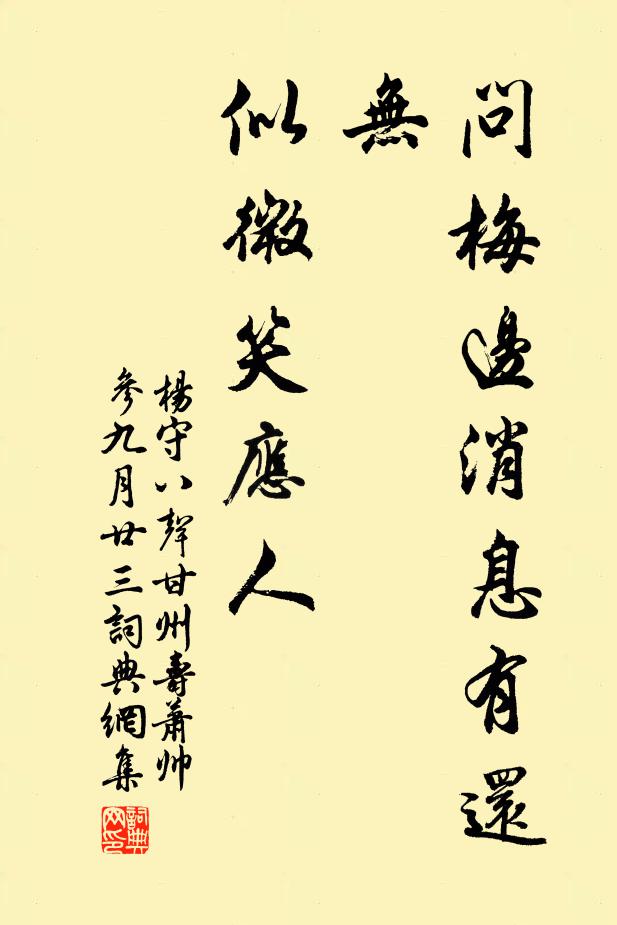 問梅邊消息有還
無
似微笑應人
楊守八聲甘州壽蕭帅
參九月廿三詞典網集
詞典
网印